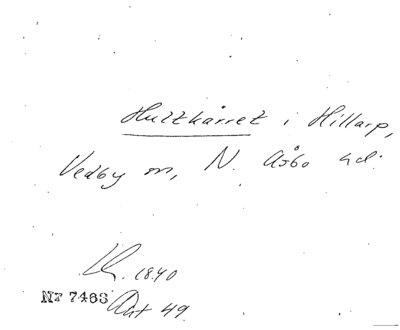 Hultkärret i Hillarp,
Vedby sn, N. Åsbo hd.
Lk. 1840
Nr 7463 Akt 49